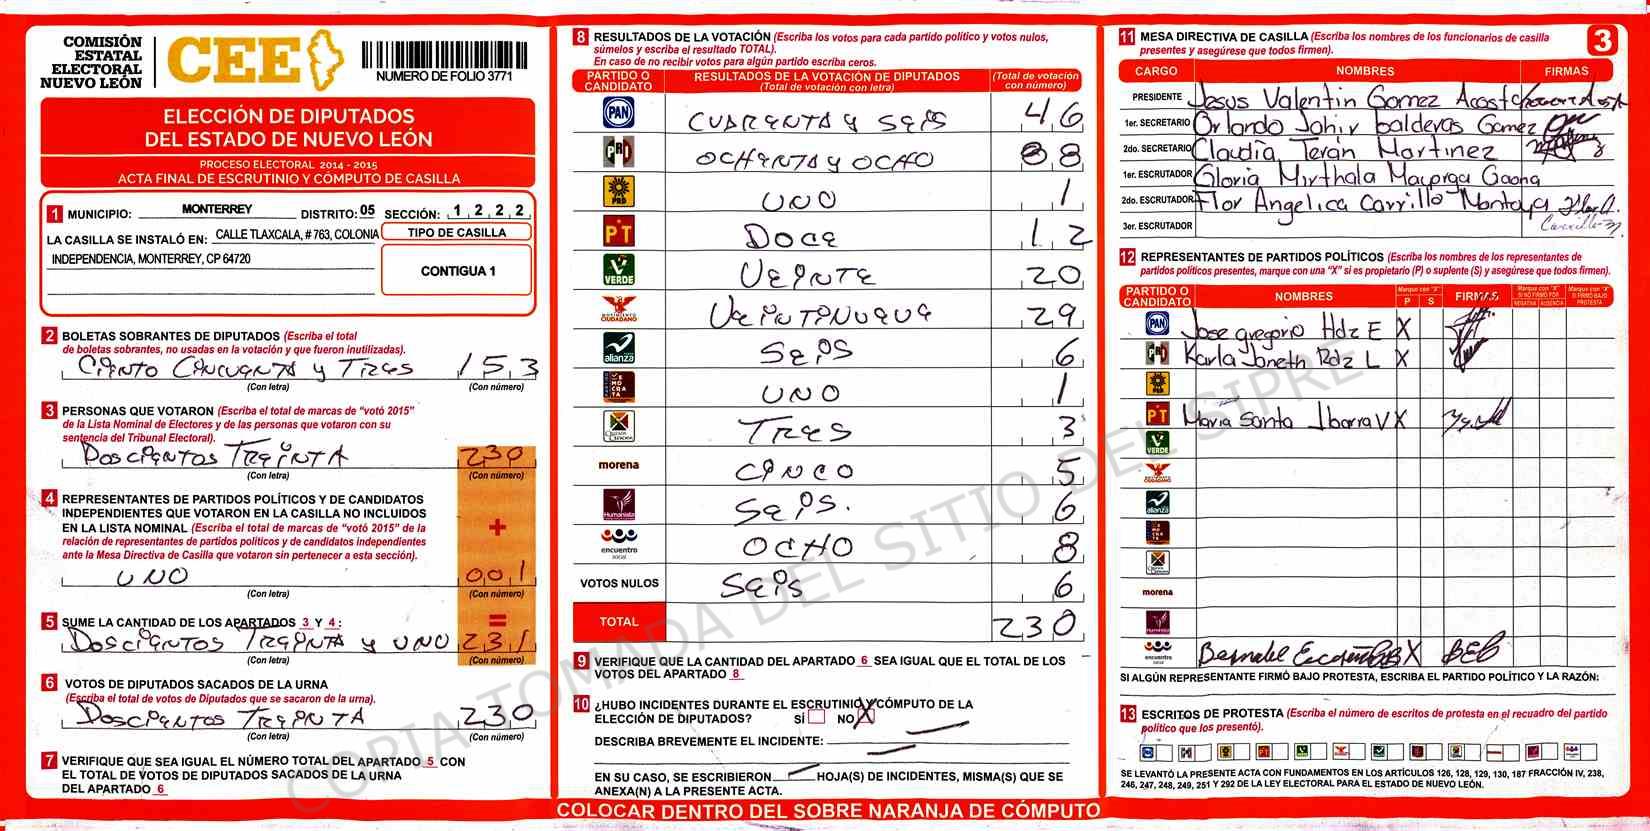 COMISIÓN
ESTATAL
ELECTORAL
NUEVO LEÓN
CEE
NUMERO DE FOLIO 3771
ELECCIÓN DE DIPUTADOS
DEL ESTADO DE NUEVO LEÓN
PROCESO ELECTORAL 2014 - 2015
ACTA FINAL DE ESCRUTINIO Y CÓMPUTO DE CASILLA
1 MUNICIPIO: MONTERREY DISTRITO: 05 SECCIÓN: 1 2 2 2
LA CASILLA SE INSTALÓ EN: CALLE TLAXCALA, # 763, COLONIA
INDEPENDENCIA, MONTERREY, CP 64720
TIPO DE CASILLA
CONTIGUA 1
2 BOLETAS SOBRANTES DE DIPUTADOS (Escriba el total
de boletas sobrantes, no usadas en la votación y que fueron inutilizadas).
CIENTO CINCUENTA y TRES 153
(Con letra) (Con número)
3 PERSONAS QUE VOTARON (Escriba el total de marcas de "votó 2015"
de la Lista Nominal de Electores y de las personas que votaron con su
sentencia del Tribunal Electoral).
DOSCIENTOS TREINTA 230
(Con letra) (Con número)
4 REPRESENTANTES DE PARTIDOS POLÍTICOS Y DE CANDIDATOS
INDEPENDIENTES QUE VOTARON EN LA CASILLA NO INCLUIDOS
EN LA LISTA NOMINAL (Escriba el total de marcas de "votó 2015" de la
relación de representantes de partidos políticos y de candidatos independientes
ante la Mesa Directiva de Casilla que votaron sin pertenecer a esta sección).
+
UNO 001
(Con letra) (Con número)
5 SUME LA CANTIDAD DE LOS APARTADOS 3 Y 4: =
DOSCIENTOS TREINTA y UNO 231
(Con letra) (Con número)
6 VOTOS DE DIPUTADOS SACADOS DE LA URNA
(Escriba el total de votos de Diputados que se sacaron de la urna).
DOSCIENTOS TREINTA 230
(Con letra) (Con número)
7 VERIFIQUE QUE SEA IGUAL EL NÚMERO TOTAL DEL APARTADO 5 CON
EL TOTAL DE VOTOS DE DIPUTADOS SACADOS DE LA URNA
DEL APARTADO 6
8 RESULTADOS DE LA VOTACIÓN (Escriba los votos para cada partido político y votos nulos,
súmelos y escriba el resultado TOTAL).
En caso de no recibir votos para algún partido escriba ceros.
PARTIDO O CANDIDATO RESULTADOS DE LA VOTACIÓN DE DIPUTADOS (Total de votación con letra) (Total de votación con número)
PAN CUARENTA y SEIS 46
PRI OCHENTA y OCHO 88
PRD UNO 1
PT DOCE 12
VERDE VEINTE 20
MOVIMIENTO CIUDADANO VEINTINUEVE 29
alianza SEIS 6
DEMOCRATA UNO 1
TRES 3
morena CINCO 5
Humanista SEIS. 6
encuentro social OCHO 8
VOTOS NULOS SEIS 6
TOTAL 230
9 VERIFIQUE QUE LA CANTIDAD DEL APARTADO 6 SEA IGUAL QUE EL TOTAL DE LOS
VOTOS DEL APARTADO 8
10 ¿HUBO INCIDENTES DURANTE EL ESCRUTINIO Y CÓMPUTO DE LA
ELECCIÓN DE DIPUTADOS? SÍ NO X
DESCRIBA BREVEMENTE EL INCIDENTE:
EN SU CASO, SE ESCRIBIERON HOJA(S) DE INCIDENTES, MISMA(S) QUE SE
ANEXA(N) A LA PRESENTE ACTA.
COLOCAR DENTRO DEL SOBRE NARANJA DE CÓMPUTO
11 MESA DIRECTIVA DE CASILLA (Escriba los nombres de los funcionarios de casilla
presentes y asegúrese que todos firmen).
3
CARGO NOMBRES FIRMAS
PRESIDENTE Jesus Valentin Gomez Acosta
1er. SECRETARIO Orlando Jahir balderas Gamez
2do. SECRETARIO Claudia Terán Martinez
1er. ESCRUTADOR Gloria Mirthala Mayorga Gaona
2do. ESCRUTADOR Flor Angelica Carrillo Montoya Flor A.
3er. ESCRUTADOR Carrillo M.
12 REPRESENTANTES DE PARTIDOS POLÍTICOS (Escriba los nombres de los representantes de
partidos políticos presentes, marque con una "X" si es propietario (P) o suplente (S) y asegúrese que todos firmen).
PARTIDO O CANDIDATO NOMBRES Marque con "X" P S FIRMAS Marque con "X" SI NO FIRMÓ POR NEGATIVA AUSENCIA Marque con "X" SI FIRMÓ BAJO PROTESTA
PAN Jose gregorio Hdz E X
PRI Karla Janeth Rdz L X
PRD
PT Maria Santa Ibarra V X
VERDE
CIUDADANO
alianza
morena
Humanista
encuentro social X BEB
SI ALGÚN REPRESENTANTE FIRMÓ BAJO PROTESTA, ESCRIBA EL PARTIDO POLÍTICO Y LA RAZÓN:
13 ESCRITOS DE PROTESTA (Escriba el número de escritos de protesta en el recuadro del partido
político que los presentó).
SE LEVANTÓ LA PRESENTE ACTA CON FUNDAMENTOS EN LOS ARTÍCULOS 126, 128, 129, 130, 187 FRACCIÓN IV, 238,
246, 247, 248, 249, 251 Y 292 DE LA LEY ELECTORAL PARA EL ESTADO DE NUEVO LEÓN.
COPIA TOMADA DEL SITIO DEL SIPRE